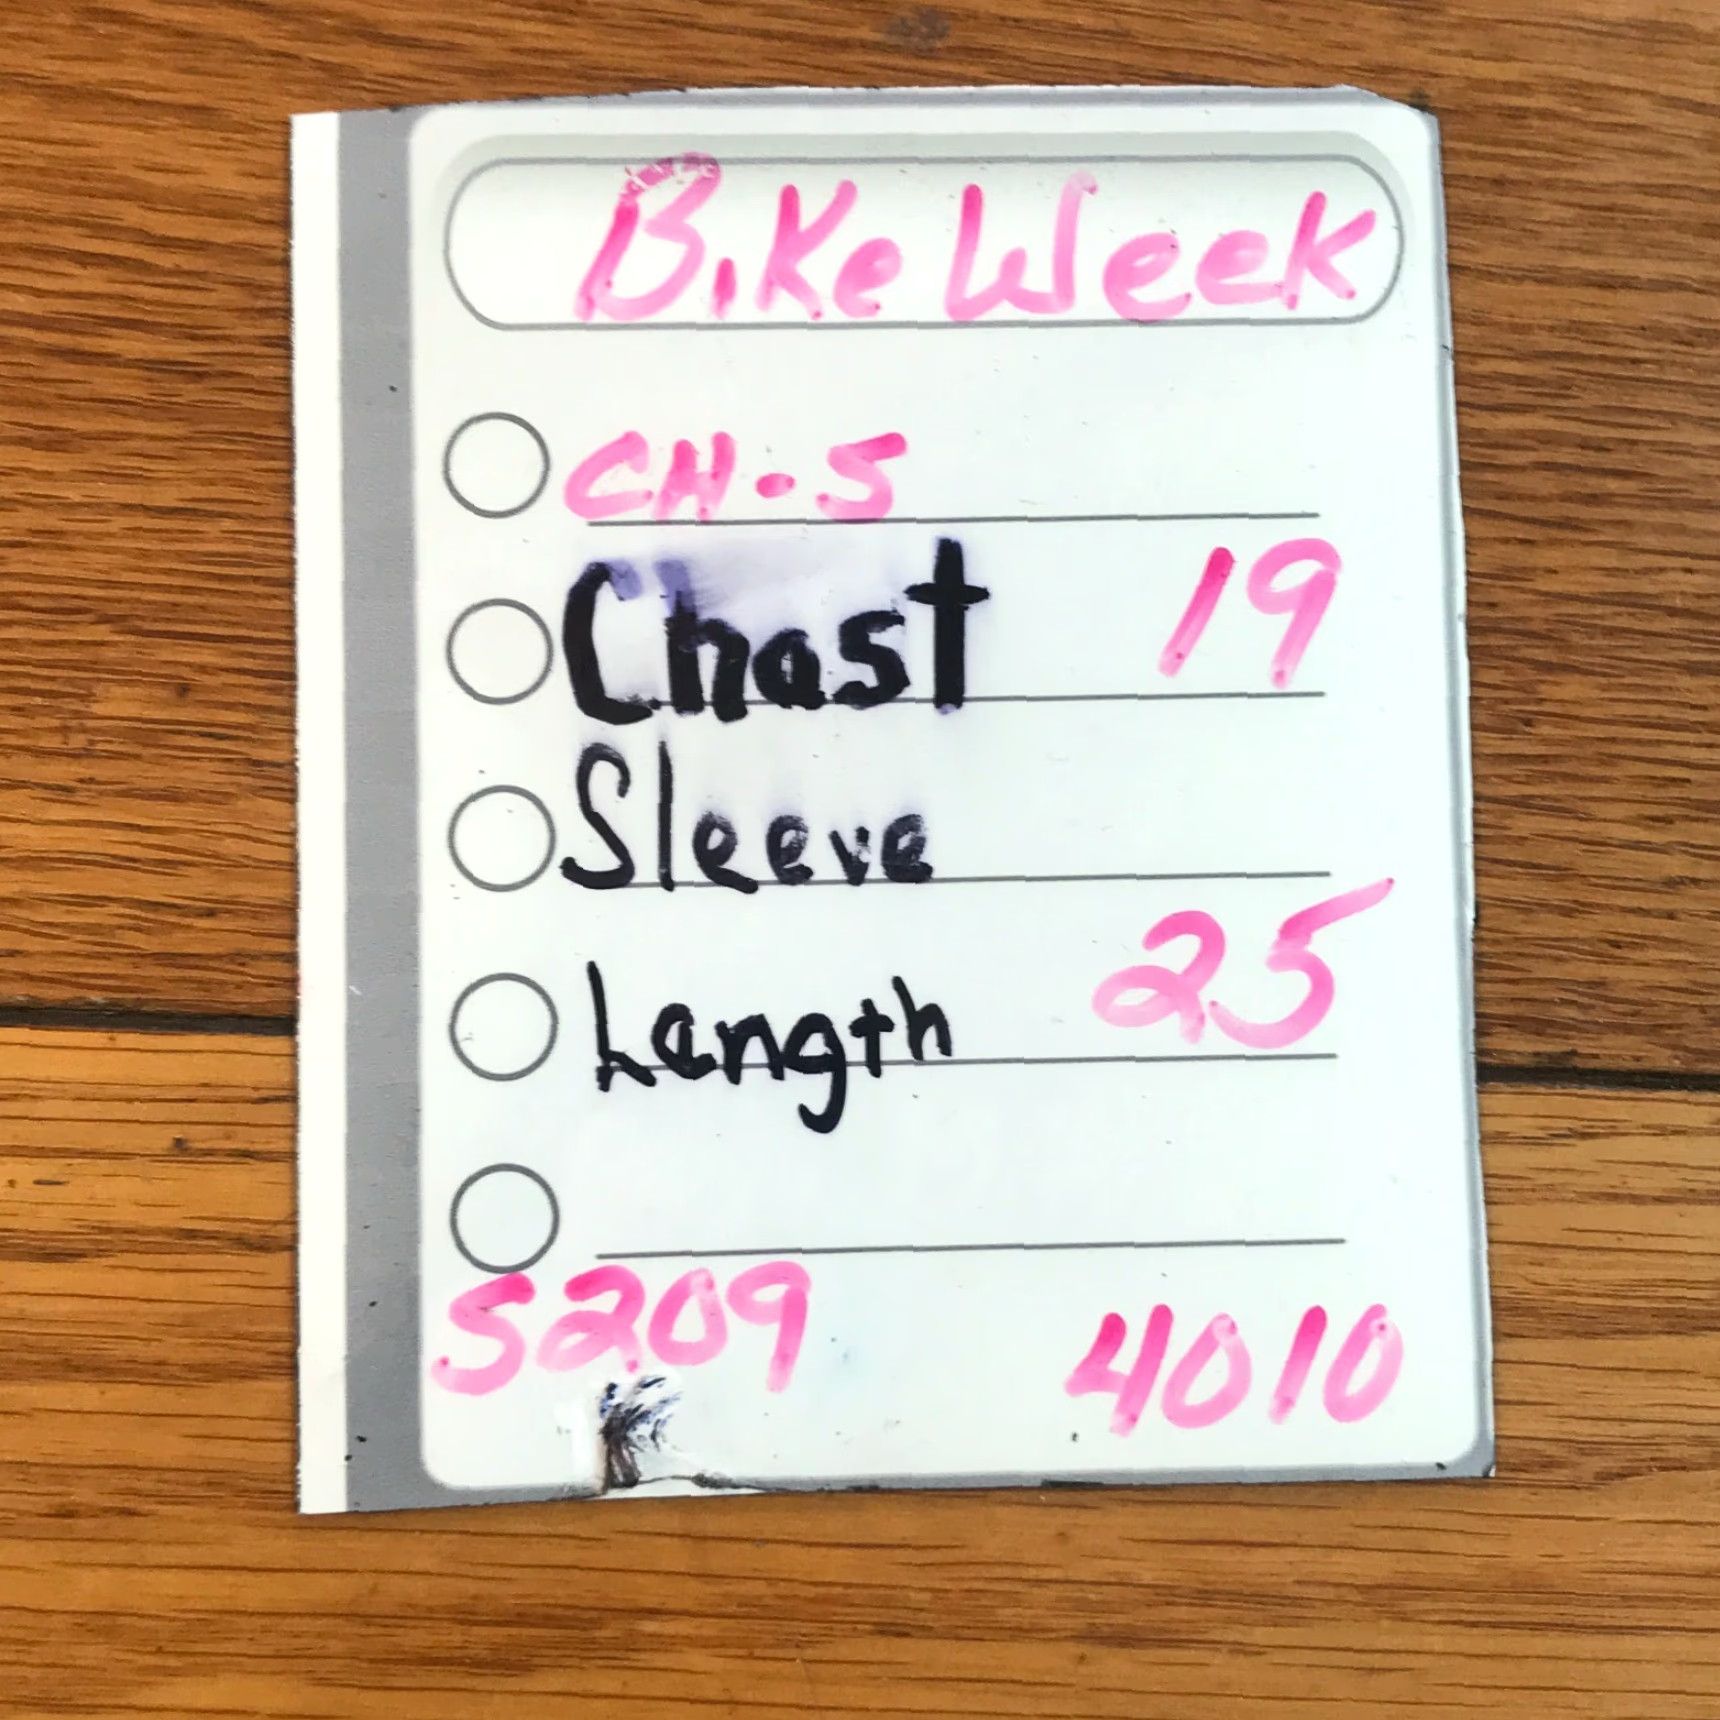 Bike Week
CH-S
Chest 19
Sleeve
Length 25
S209 4010